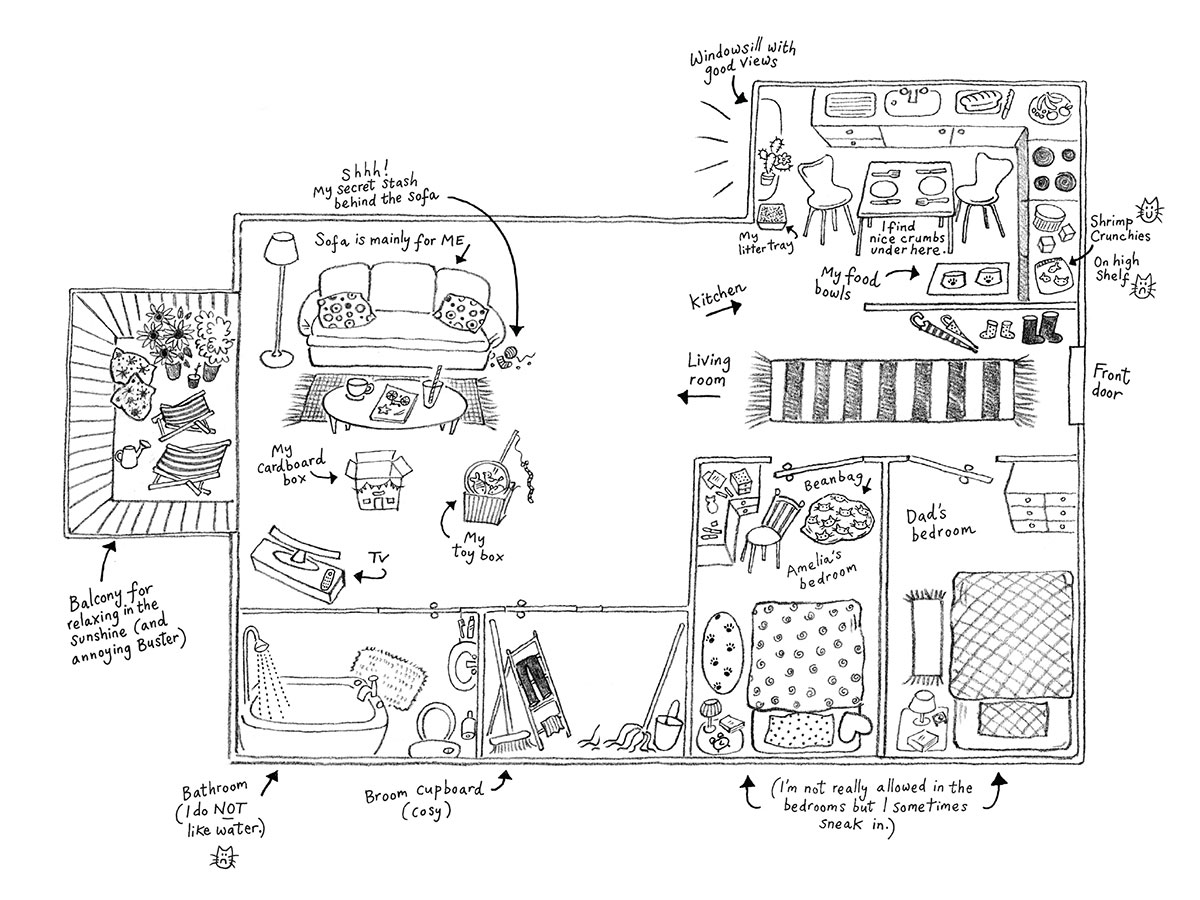 Windowsill with
good views
Shhh!
My secret stash
behind the sofa
Sofa is mainly for ME
My
litter tray
I find
nice crumbs
under here.
Shrimp
Crunchies
On high
shelf
My food
bowls
Kitchen
Living
room
Front
door
My
cardboard
box
My
toy box
TV
Beanbag
Amelia's
bedroom
Dad's
bedroom
Balcony for
relaxing in the
sunshine (and
annoying Buster)
Bathroom
(I do NOT
like water.)
Broom cupboard
(cosy)
(I'm not really allowed in the
bedrooms but I sometimes
sneak in.)